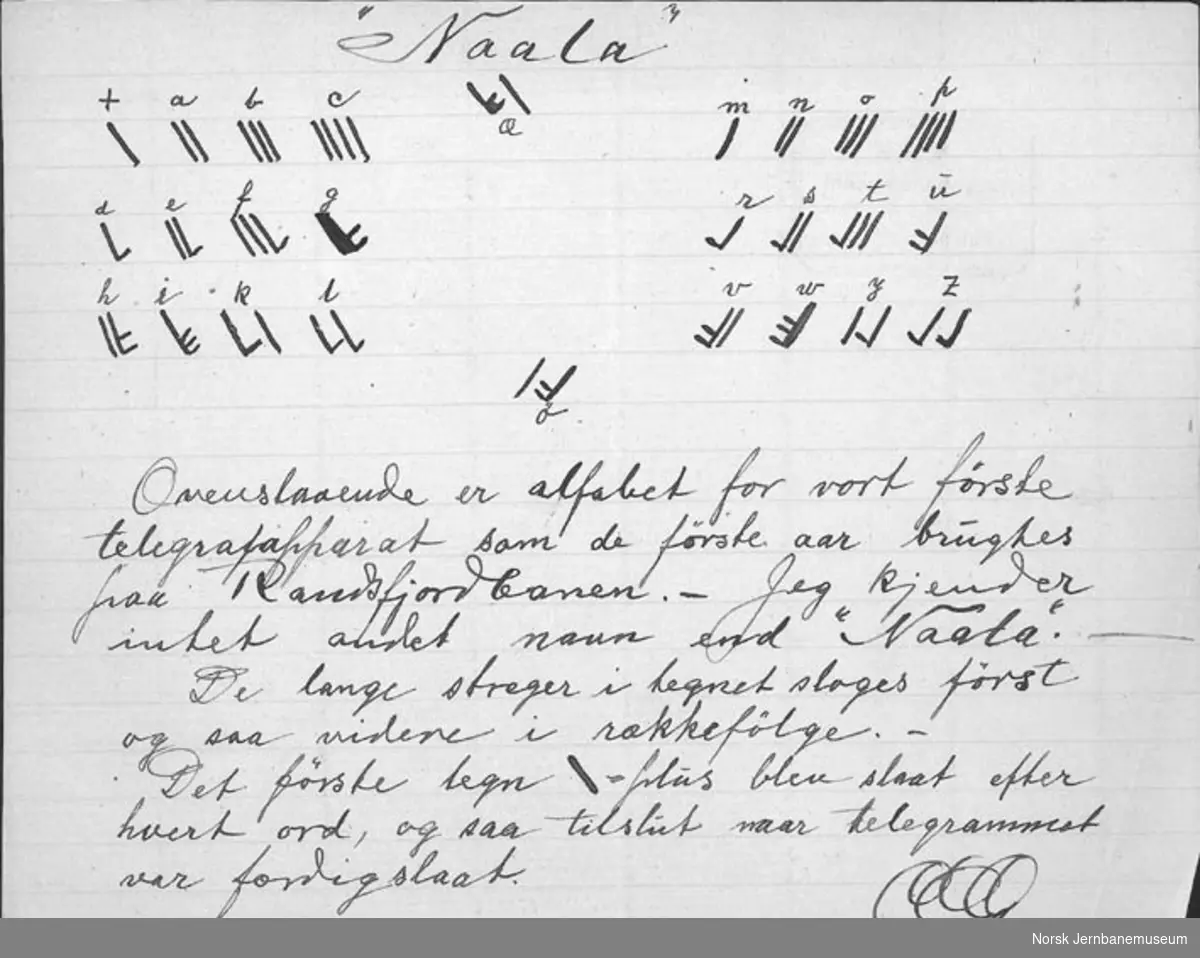 "Naala"
+ a b c æ m n o p
d e f g r s t ü
h i k l v w y z
ö
Ovenstaaende er alfabet for vort förste
telegrafapparat som de förste aar brugtes
paa Randsfjordbanen. – Jeg kjender
intet andet navn end "Naala". —
De lange streger i tegnet sloges först
og saa videre i rækkefölge. –
Det förste tegn \ = plus blev slaat efter
hvert ord, og saa tilslut naar telegrammet
var færdigslaat.
Norsk Jernbanemuseum